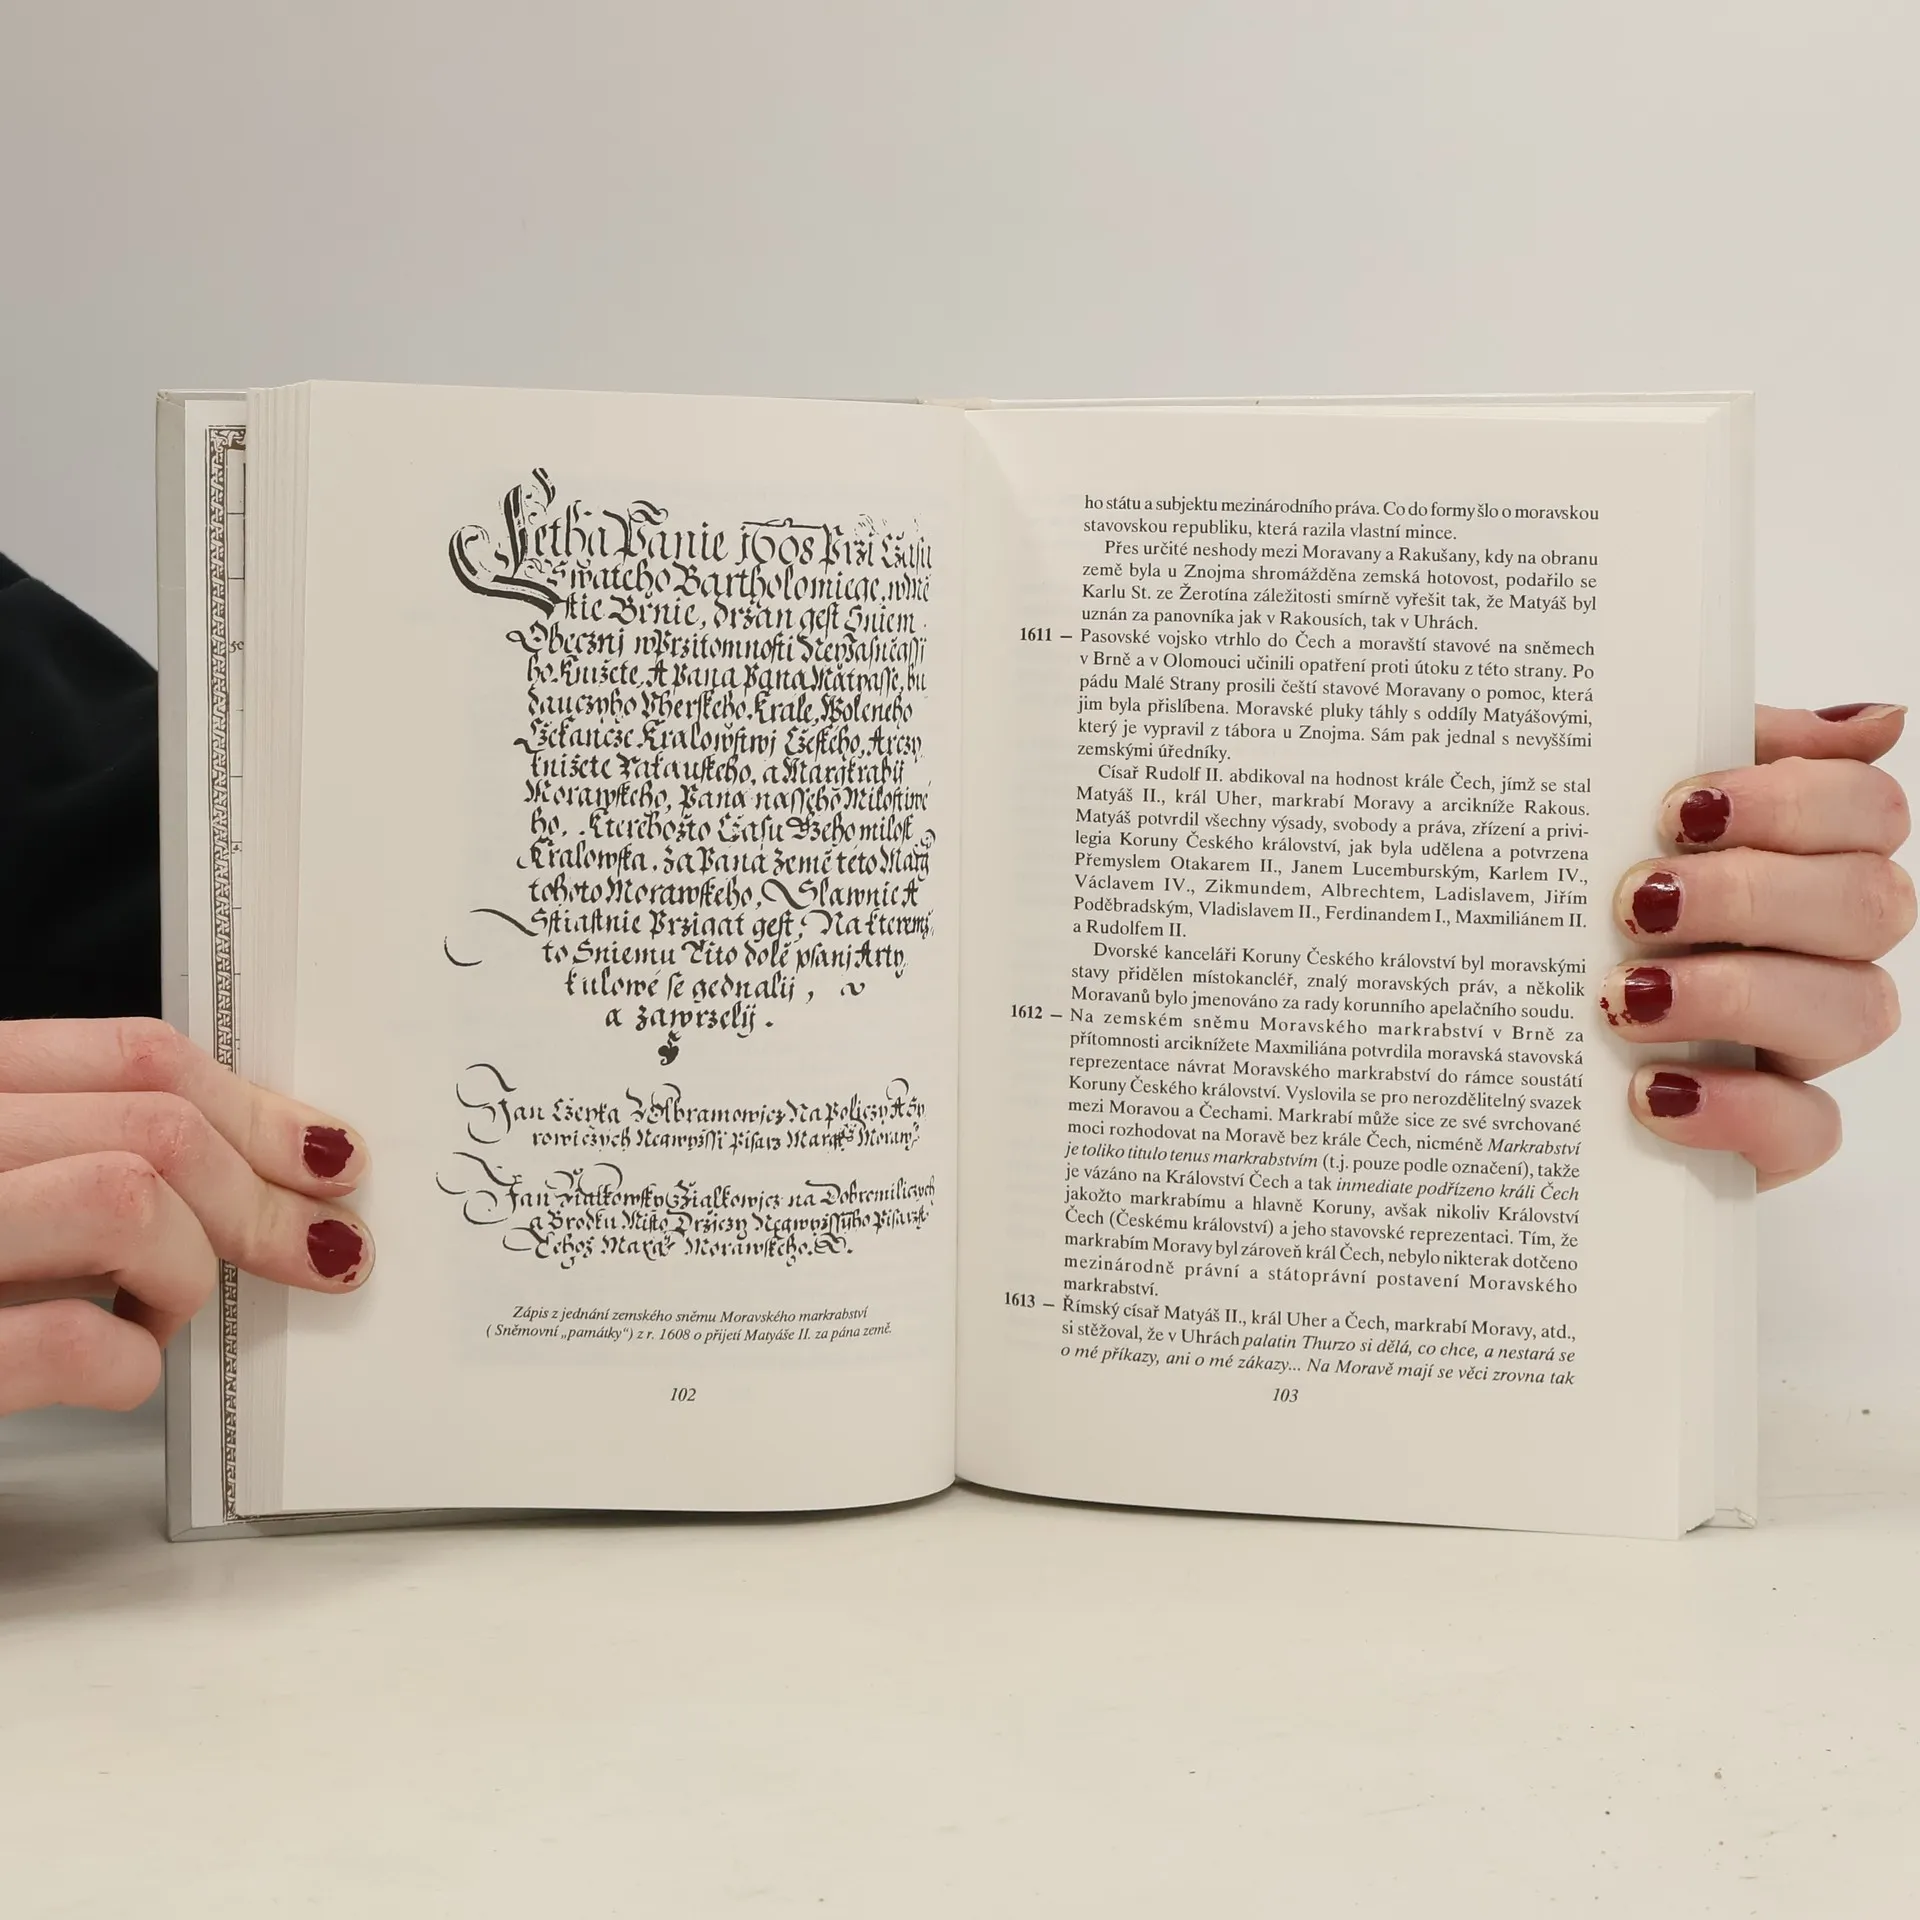 Letha Panie 1608 Przi Cžasu
Swateho Bartholomiege, w Mě
stie Brnie, držan gest Sniem
Obecznj w Przitomnosti Neyjasněgssy
ho Knižete, A Pana Pana Matyasse, bu
dauczyho Vherskeho Krale, Woleneho
Cžekancze Kralowstwj Cžeskeho, Arczy
knižete Rakauskeho, a Margkrabij
Morawskeho, Pana nasseho Milostiwe
ho, Kterehožto Cžasu Geho milost
Kralowska, za Pana Země této Marg
tohoto Morawskeho, Slawnie A
Sstiastnie Przigat gest, Na kteremž
to Sniemu Tito dole psanj Arty
kulowé se gednalij,
a zawrzelij.
Jan Cžeyka Wolbramowicz Na Policzy A Sy
rowiczych Negwyssi Pisarz Margks Moraws
Jan Žialkowsky Z Žialkowicz na Dobromiliczych
a Brodku Misto Držiczy Negwyžssyho Pisarzst
Tehož Marg Morawskeho.
Zápis z jednání zemského sněmu Moravského markrabství
( Sněmovní „památky“) z r. 1608 o přijetí Matyáše II. za pána země.
102
ho státu a subjektu mezinárodního práva. Co do formy šlo o moravskou
stavovskou republiku, která razila vlastní mince.
Přes určité neshody mezi Moravany a Rakušany, kdy na obranu
země byla u Znojma shromážděna zemská hotovost, podařilo se
Karlu St. ze Žerotína záležitosti smírně vyřešit tak, že Matyáš byl
uznán za panovníka jak v Rakousích, tak v Uhrách.
1611 – Pasovské vojsko vtrhlo do Čech a moravští stavové na sněmech
v Brně a v Olomouci učinili opatření proti útoku z této strany. Po
pádu Malé Strany prosili čeští stavové Moravany o pomoc, která
jim byla přislíbena. Moravské pluky táhly s oddíly Matyášovými,
který je vypravil z tábora u Znojma. Sám pak jednal s nevyššími
zemskými úředníky.
Císař Rudolf II. abdikoval na hodnost krále Čech, jímž se stal
Matyáš II., král Uher, markrabí Moravy a arcikníže Rakous.
Matyáš potvrdil všechny výsady, svobody a práva, zřízení a privi-
legia Koruny Českého království, jak byla udělena a potvrzena
Přemyslem Otakarem II., Janem Lucemburským, Karlem IV.,
Václavem IV., Zikmundem, Albrechtem, Ladislavem, Jiřím
Poděbradským, Vladislavem II., Ferdinandem I., Maxmiliánem II.
a Rudolfem II.
Dvorské kanceláři Koruny Českého království byl moravskými
stavy přidělen místokancléř, znalý moravských práv, a několik
Moravanů bylo jmenováno za rady korunního apelačního soudu.
1612 – Na zemském sněmu Moravského markrabství v Brně za
přítomnosti arciknížete Maxmiliána potvrdila moravská stavovská
reprezentace návrat Moravského markrabství do rámce soustátí
Koruny Českého království. Vyslovila se pro nerozdělitelný svazek
mezi Moravou a Čechami. Markrabí může sice ze své svrchované
moci rozhodovat na Moravě bez krále Čech, nicméně Markrabství
je toliko titulo tenus markrabstvím (t.j. pouze podle označení), takže
je vázáno na Království Čech a tak inmediate podřízeno králi Čech
jakožto markrabímu a hlavně Koruny, avšak nikoliv Království
Čech (Českému království) a jeho stavovské reprezentaci. Tím, že
markrabím Moravy byl zároveň král Čech, nebylo nikterak dotčeno
mezinárodně právní a státoprávní postavení Moravského
markrabství.
1613 – Římský císař Matyáš II., král Uher a Čech, markrabí Moravy, atd.,
si stěžoval, že v Uhrách palatin Thurzo si dělá, co chce, a nestará se
o mé příkazy, ani o mé zákazy... Na Moravě mají se věci zrovna tak
103